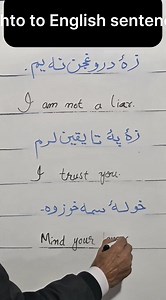 hto to English senten
زۀ دروغجن نہ یم.
I am not a liar.
زۀ پۀ تا یقین لرم
I trust you.
خولہ دِ سمہ خوزوہ۔
Mind your